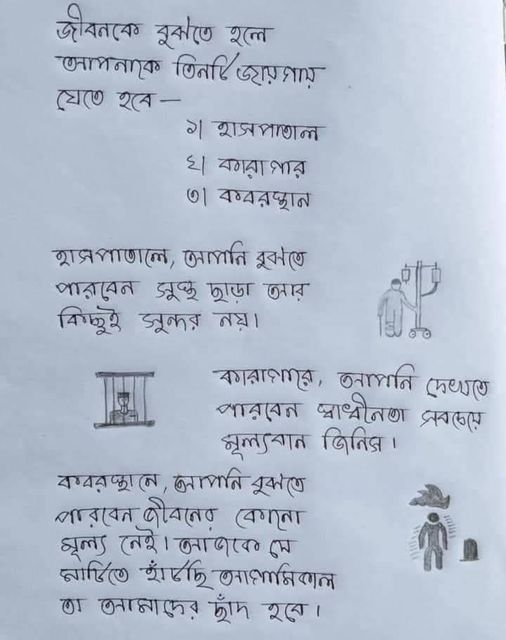 জীবনকে বুঝতে হলে
আপনাকে তিনটি জায়গায়
যেতে হবে —
১| হাসপাতাল
২| কারাগার
৩| কবরস্থান
হাসপাতালে, আপনি বুঝতে
পারবেন সুস্থ ছাড়া আর
কিছুই সুন্দর নয়।
কারাগারে, আপনি দেখতে
পারবেন স্বাধীনতা সবচেয়ে
মূল্যবান জিনিস।
কবরস্থানে, আপনি বুঝতে
পারবেন জীবনের কোনো
মূল্য নেই। আজকে যে
মাটিতে হাঁটছি আগামিকাল
তা আমাদের ছাঁদ হবে।